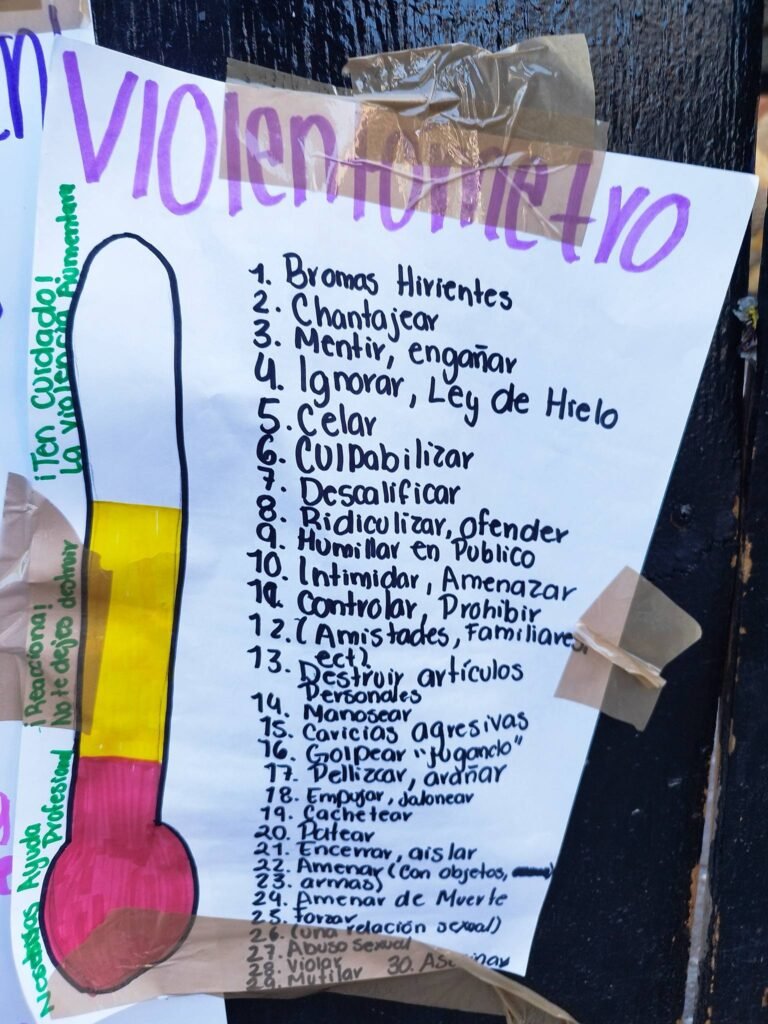 Violentometro
¡Ten cuidado!
La violencia Aumentara
¡Reacciona!
No te dejes destruir
Ayuda
Profesional
1. Bromas Hirientes
2. Chantajear
3. Mentir, engañar
4. Ignorar, Ley de Hielo
5. Celar
6. Culpabilizar
7. Descalificar
8. Ridiculizar, ofender
9. Humillar en Publico
10. Intimidar, Amenazar
11. Controlar, Prohibir
12. (Amistades, Familiares,
ect)
13. Destruir artículos
Personales
14. Manosear
15. Caricias agresivas
16. Golpear "jugando"
17. Pellizcar, arañar
18. Empujar, Jalonear
19. Cachetear
20. Patear
21. Encerrar, aislar
22. Amenar (Con objetos,
23. armas)
24. Amenar de Muerte
25. Forzar
26. (una relación sexual)
27. Abuso sexual
28. Violar
29. Mutilar 30. Asesinar